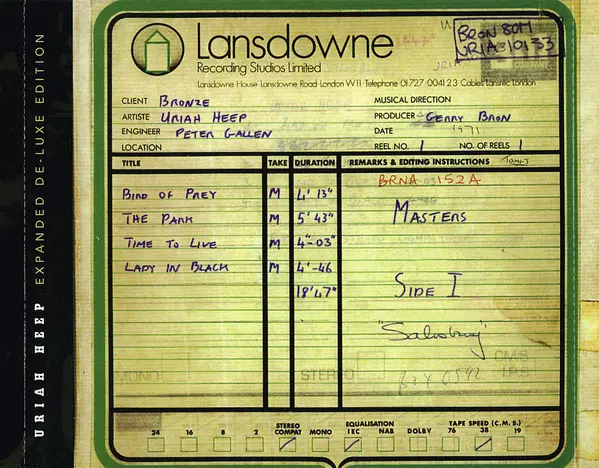 URIAH HEEP EXPANDED DE-LUXE EDITION
Lansdowne
Recording Studios Limited
Lansdowne House · Lansdowne Road · London W11 · Telephone 01-727 0041 2 3 · Cables Lansrec London
BRON 80M
CLIENT BRONZE MUSICAL DIRECTION
ARTISTE URIAH HEEP PRODUCER GERRY BRON
ENGINEER PETER GALLEN DATE 1971
LOCATION REEL NO. 1 NO. OF REELS 1
TITLE TAKE DURATION REMARKS & EDITING INSTRUCTIONS
BRNA 152A
BIRD OF PREY M 4' 13"
MASTERS
THE PARK M 5' 43"
TIME TO LIVE M 4"-03"
LADY IN BLACK M 4'-46
18'47" SIDE I
"Salisbury"
MONO STEREO
STEREO EQUALISATION TAPE SPEED (C.M.S.)
24 16 8 2 COMPAT MONO IEC NAB DOLBY 76 38 19